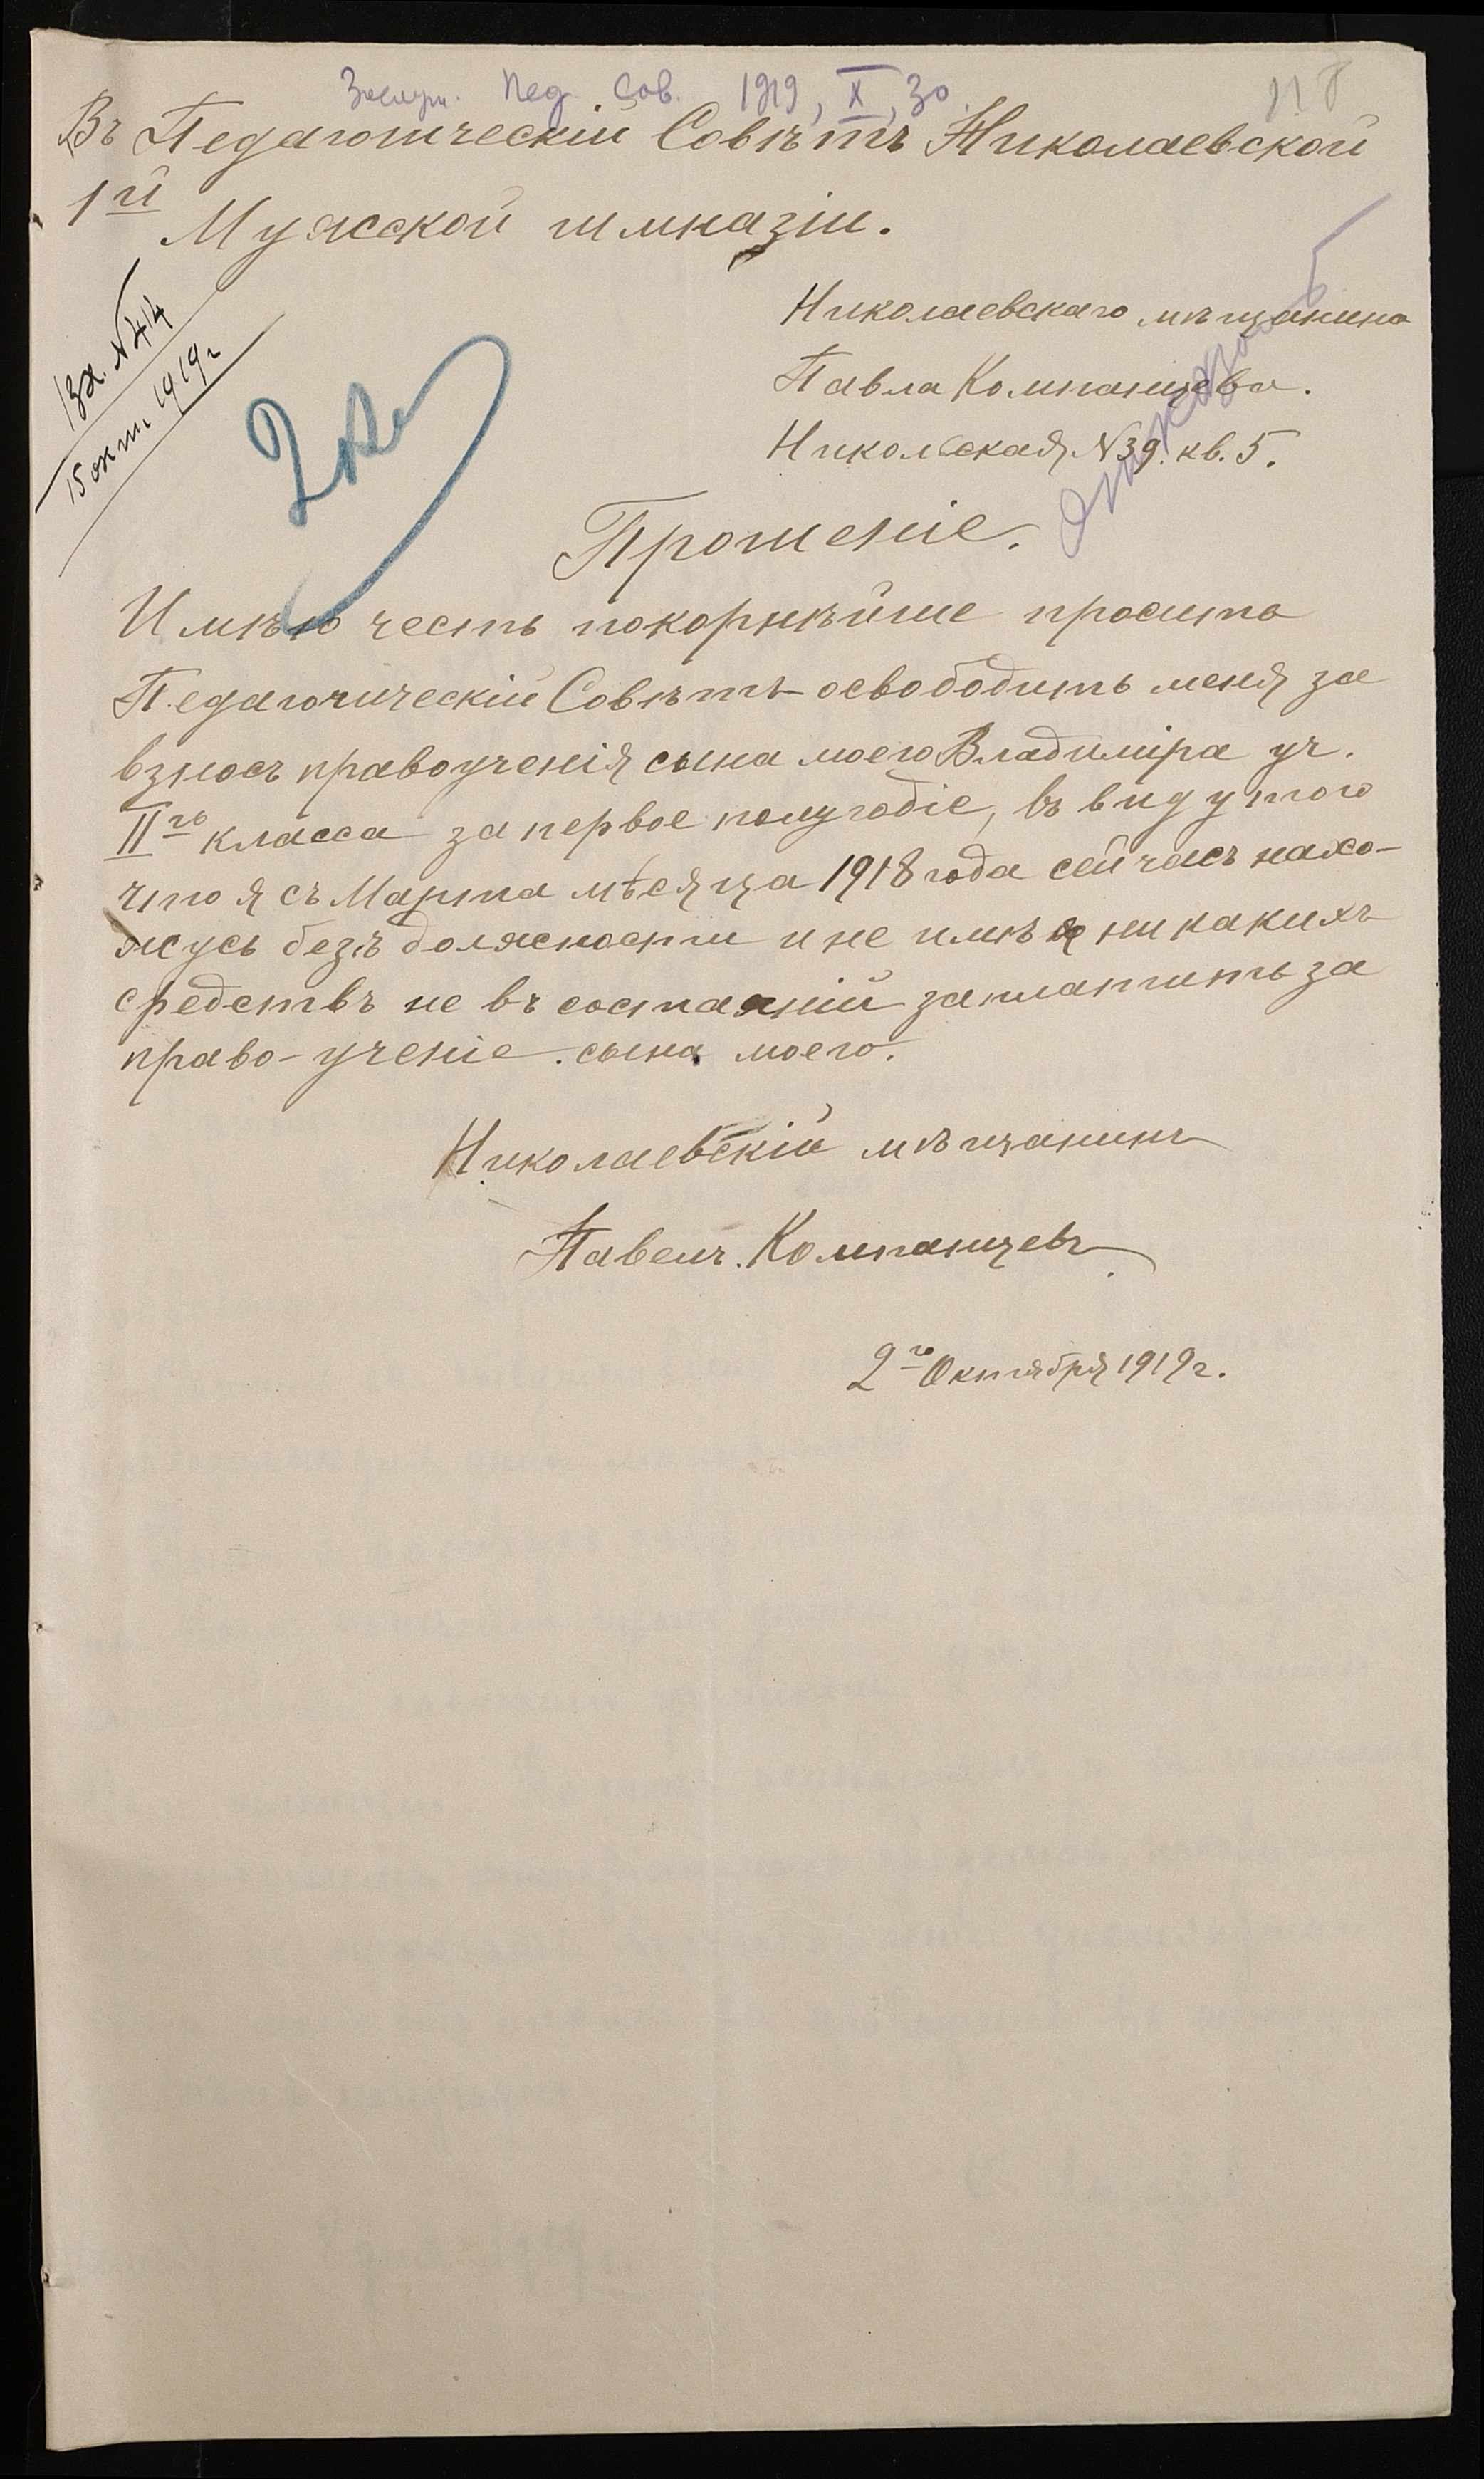 Пед. Сов. 1919, X, 30
118
Въ Педагогическій Совѣтъ Николаевской
1й Мужской гимназіи.
Вх. N 414
15 окт. 1919 г
Николаевскаго мѣщанина
Павла Компанцева.
Никольская N 39. кв. 5.
отказать
Прошеніе.
Имѣю честь покорнѣйше просить
Педагогическій Совѣтъ освободить меня за
взносъ правоученія сына моего Владиміра уч.
IIго класса за первое полугодіе, въ виду того
что я съ Марта мѣсяца 1918 года сейчасъ нахо-
жусь безъ должности и не имѣя никакихъ
средствъ не въ состааній заплатить за
право-ученіе. сына моего.
Николаевскій мѣщанинъ
Павелъ. Компанцевъ
2го Октября 1919 г.